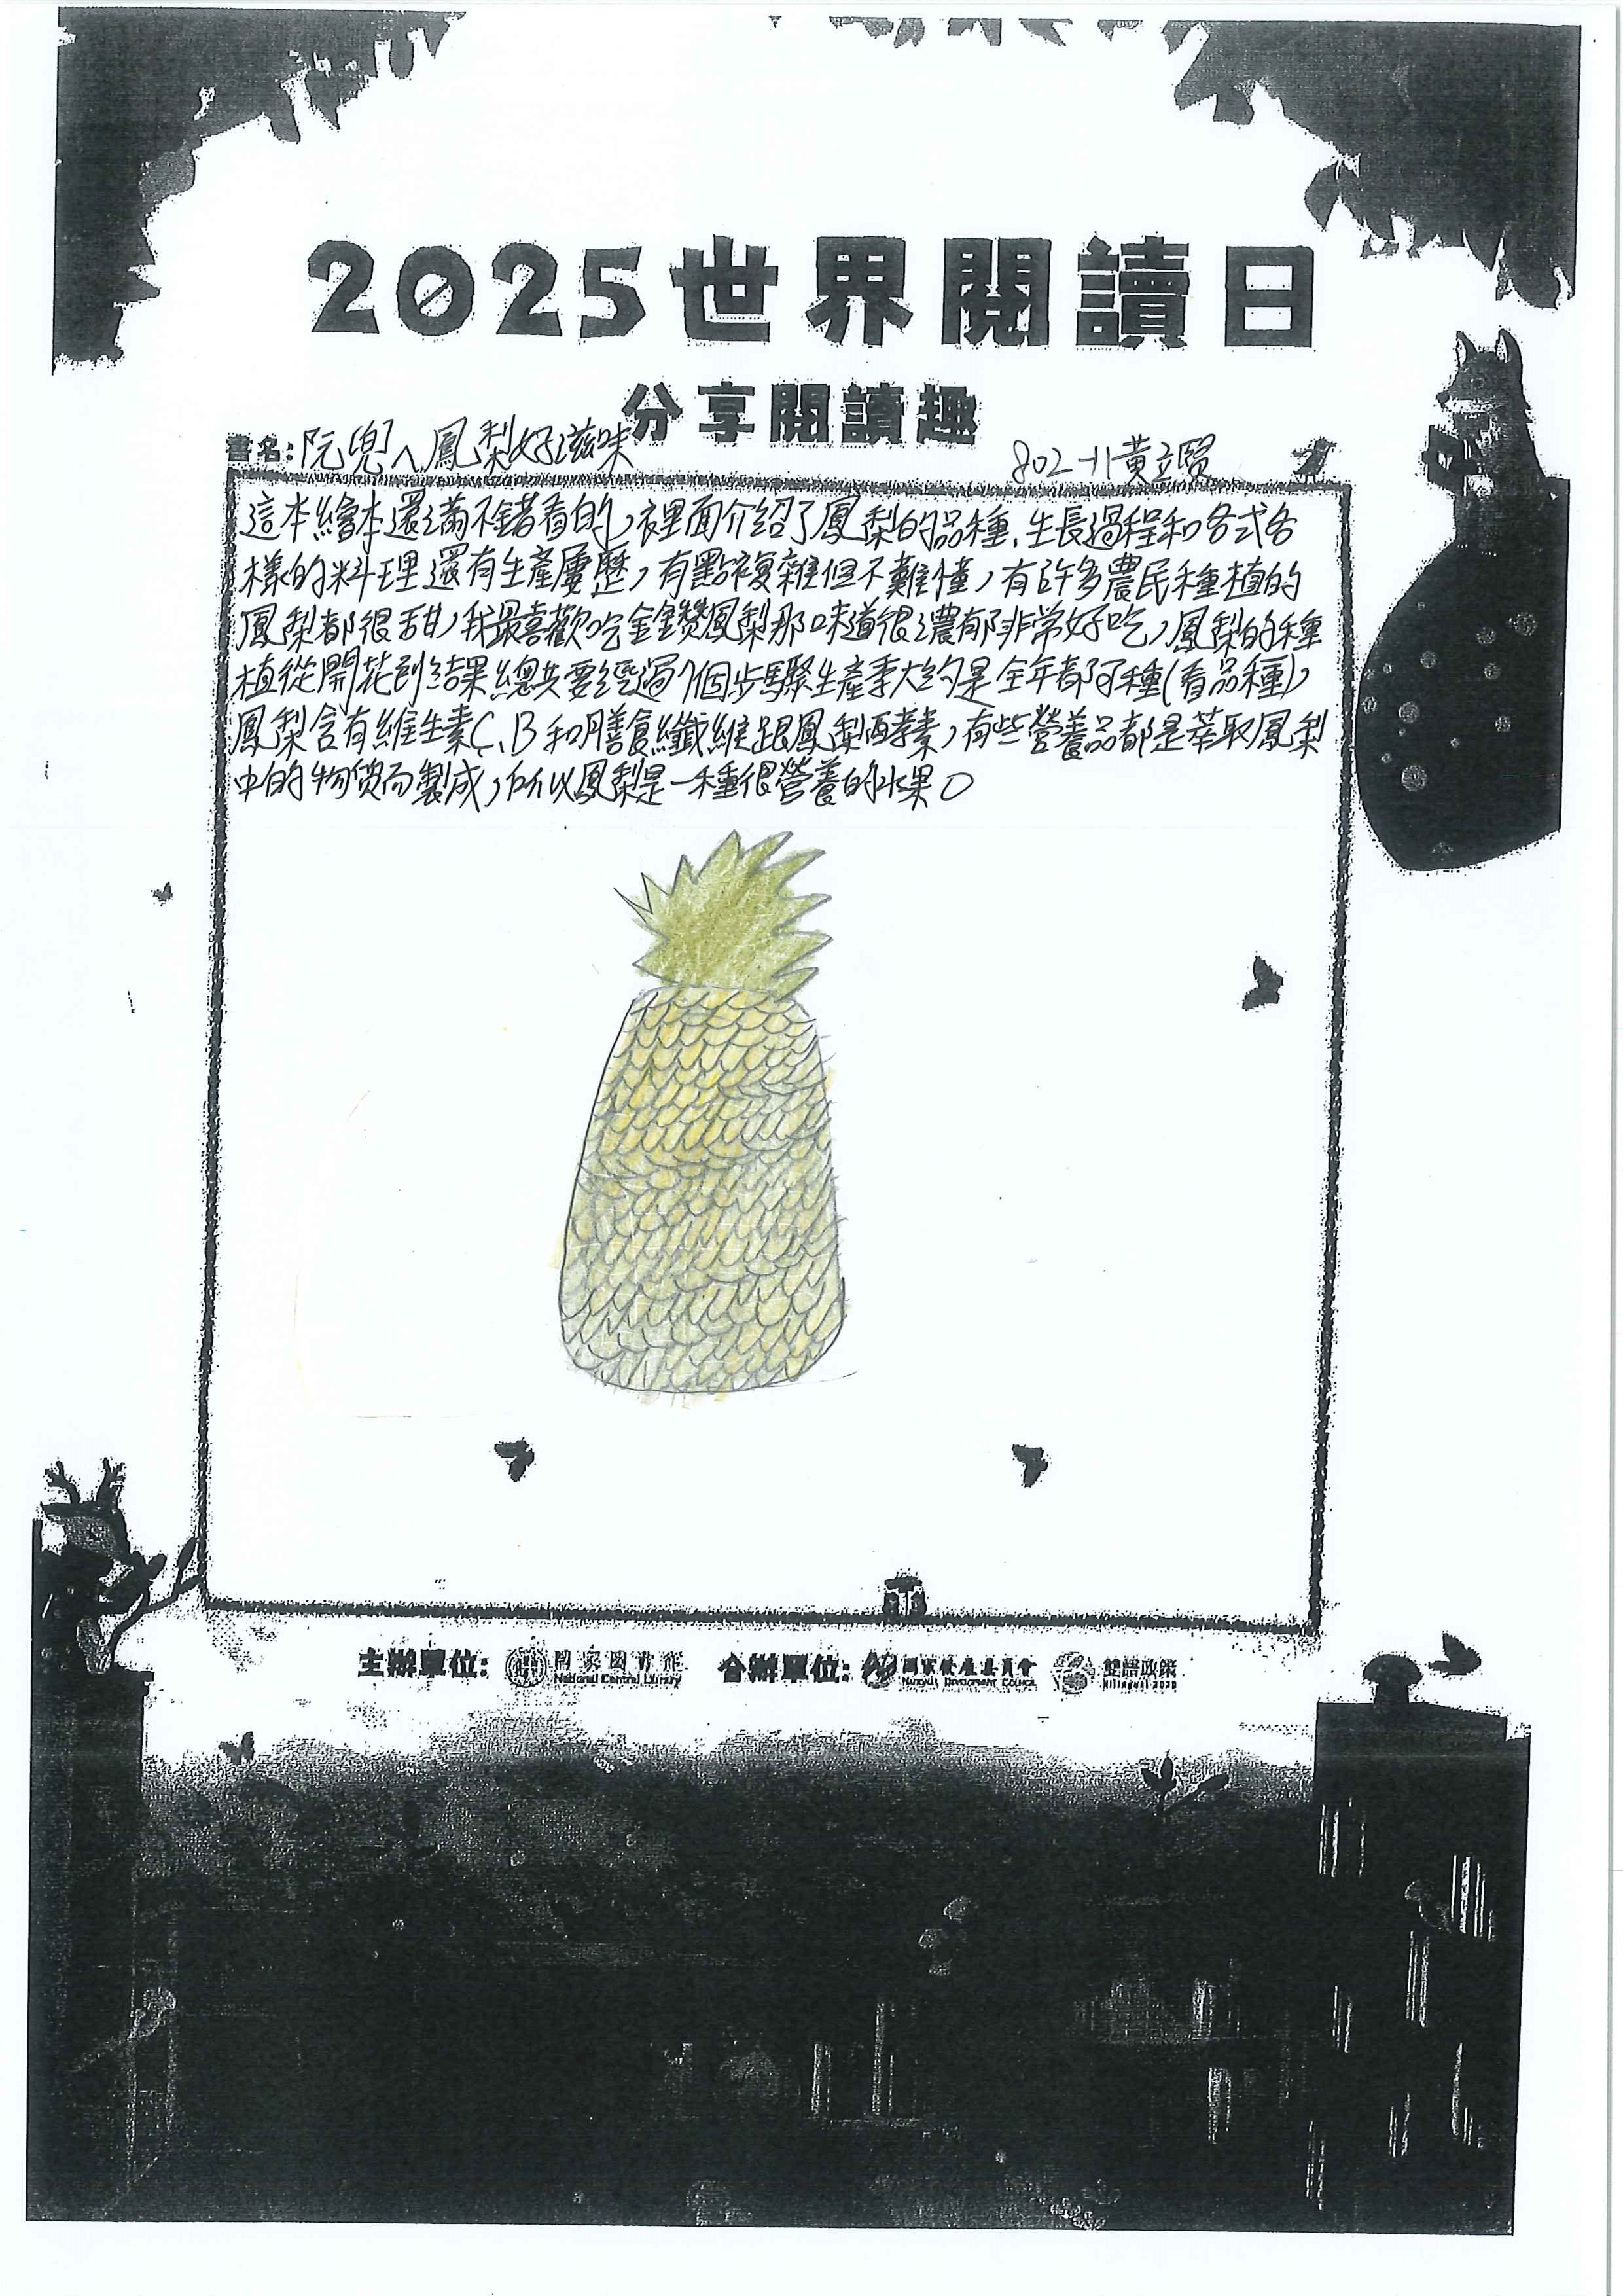 2025世界閱讀日
分享閱讀趣
書名:阮兜ㄟ鳳梨好滋味
802-11黃立賢
這本繪本還滿不錯看的,裡面介紹了鳳梨的品種、生長過程和各式各
樣的料理還有生產履歷,有點複雜但不難懂,有許多農民種植的
鳳梨都很甜,我最喜歡吃金鑽鳳梨那味道很濃郁非常好吃,鳳梨的種
植從開花到結果總共要經過7個步驟生產季大約是全年都可種(看品種),
鳳梨含有維生素C、B和膳食纖維跟鳳梨酵素,有些營養品都是萃取鳳梨
中的物質而製成,所以鳳梨是一種很營養的水果。
主辦單位: 國家圖書館 National Central Library 合辦單位: 國家發展委員會 National Development Council 雙語政策 Bilingual 2030